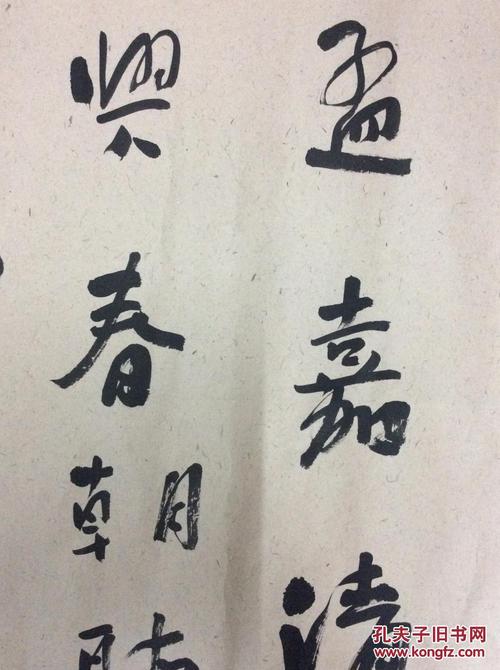 孟嘉清
春朝
孔夫子旧书网
www.kongfz.com